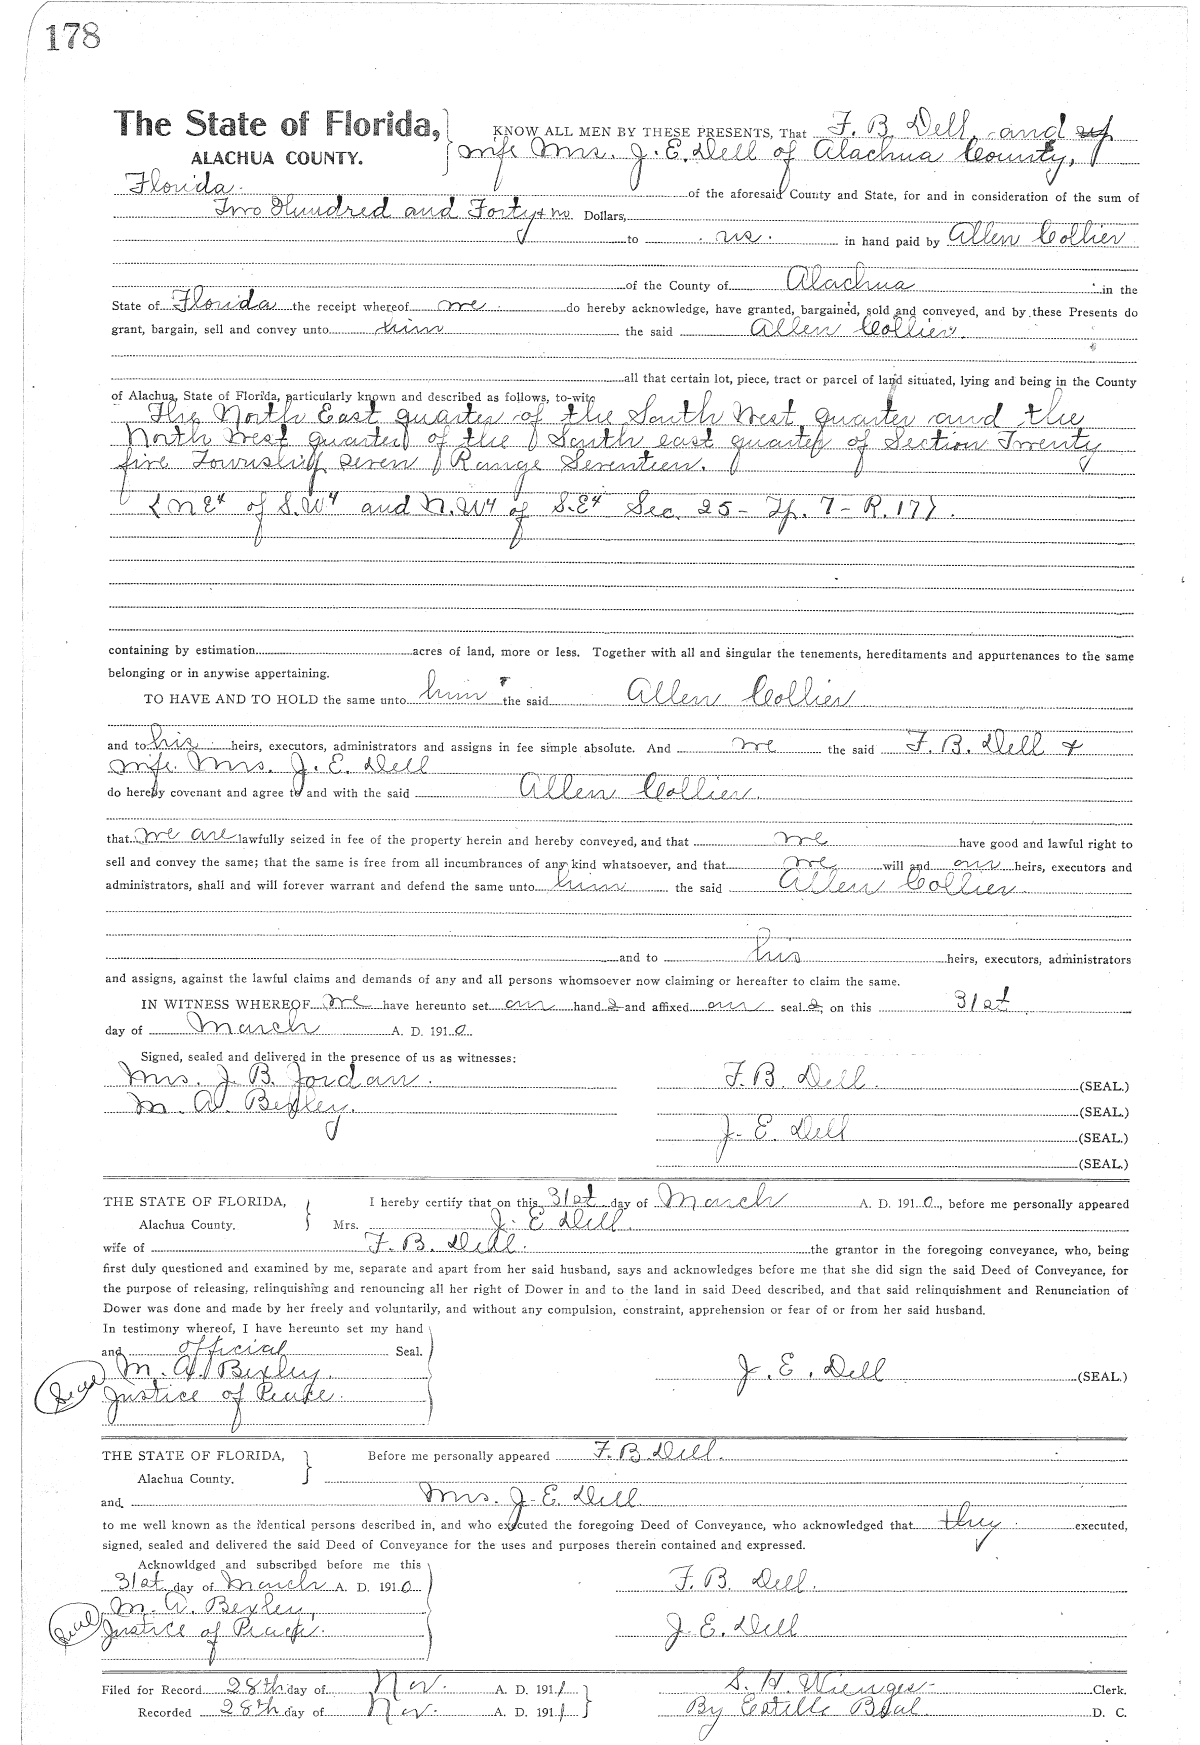 178
The State of Florida, KNOW ALL MEN BY THESE PRESENTS, That F. B. Dell, and
ALACHUA COUNTY. wife Mrs. J. E. Dell of Alachua County,
Florida. of the aforesaid County and State, for and in consideration of the sum of
Two Hundred and Forty & no Dollars,
to us. in hand paid by Allen Collier
of the County of Alachua in the
State of Florida the receipt whereof we do hereby acknowledge, have granted, bargained, sold and conveyed, and by these Presents do
grant, bargain, sell and convey unto him the said Allen Collier.
all that certain lot, piece, tract or parcel of land situated, lying and being in the County
of Alachua, State of Florida, particularly known and described as follows, to-wit
The North East quarter of the South West quarter and the
North West quarter of the South east quarter of Section Twenty
five Township seven Range Seventeen.
{N E 4 of S.W 4 and N.W 4 of S.E 4 Sec. 25 - Tp. 7 - R. 17}.
containing by estimation acres of land, more or less. Together with all and singular the tenements, hereditaments and appurtenances to the same
belonging or in anywise appertaining.
TO HAVE AND TO HOLD the same unto him the said Allen Collier
and to his heirs, executors, administrators and assigns in fee simple absolute. And we the said F. B. Dell &
wife. Mrs. J. E. Dell
do hereby covenant and agree to and with the said Allen Collier.
that we are lawfully seized in fee of the property herein and hereby conveyed, and that we have good and lawful right to
sell and convey the same; that the same is free from all incumbrances of any kind whatsoever, and that we will and our heirs, executors and
administrators, shall and will forever warrant and defend the same unto him the said Allen Collier
and to his heirs, executors, administrators
and assigns, against the lawful claims and demands of any and all persons whomsoever now claiming or hereafter to claim the same.
IN WITNESS WHEREOF we have hereunto set our hand s and affixed our seal s, on this 31st
day of March A. D. 1910.
Signed, sealed and delivered in the presence of us as witnesses:
Mrs. J. B. Jordan. F. B Dell. (SEAL.)
M. A. Bexley. (SEAL.)
J. E. Dell (SEAL.)
(SEAL.)
THE STATE OF FLORIDA, I hereby certify that on this 31st day of March A. D. 1910., before me personally appeared
Alachua County. Mrs. J. E Dell.
wife of F. B. Dell. the grantor in the foregoing conveyance, who, being
first duly questioned and examined by me, separate and apart from her said husband, says and acknowledges before me that she did sign the said Deed of Conveyance, for
the purpose of releasing, relinquishing and renouncing all her right of Dower in and to the land in said Deed described, and that said relinquishment and Renunciation of
Dower was done and made by her freely and voluntarily, and without any compulsion, constraint, apprehension or fear of or from her said husband.
In testimony whereof, I have hereunto set my hand
and official Seal.
M. A. Bexley. J. E. Dell (SEAL.)
Seal Justice of Peace.
THE STATE OF FLORIDA, Before me personally appeared F. B Dell.
Alachua County.
and Mrs. J. E. Dell
to me well known as the identical persons described in, and who executed the foregoing Deed of Conveyance, who acknowledged that they executed,
signed, sealed and delivered the said Deed of Conveyance for the uses and purposes therein contained and expressed.
Acknowldged and subscribed before me this
31st day of March A. D. 1910 F. B. Dell.
M. A. Bexley,
Seal Justice of Peace. J. E. Dell
Filed for Record 28th day of Nov. A. D. 1911 S. H. Wienges Clerk.
Recorded 28th day of Nov. A. D. 1911 By Estelle D. C.